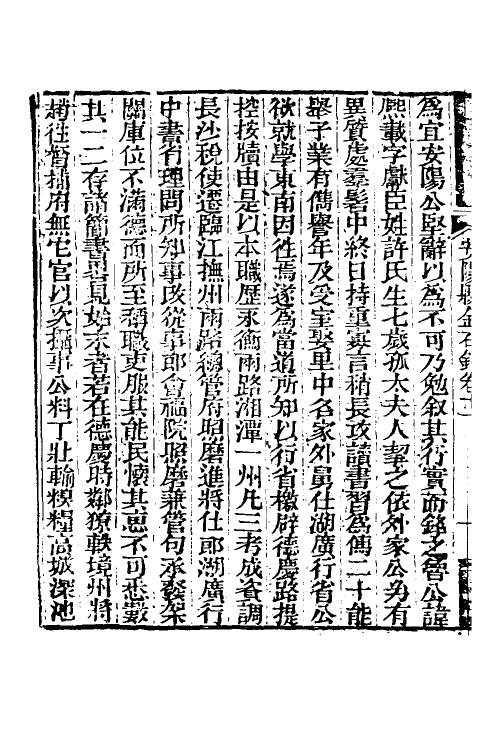 安陽縣金石錄卷十
為宜安陽公堅辭以為不可乃勉敘其行實而銘之曾公諱
熙載字獻臣姓許氏生七歲孤太夫人挈之依外家公幼有
異質處羣髫中終日持重寡言稍長攻讀書習為儁二十能
舉子業有儁譽年及受室娶里中名家外舅仕湖廣行省公
欲就學東南因往焉遂為當道所知以行省檄辟德慶路提
控按牘由是以本職歷永衡兩路湘潭一州凡三考成資調
長沙稅使遷臨江撫州兩路緫管府照磨進將仕郎湖廣行
中書省理問所知事改從事郎會福院照磨兼管句承發架
閣庫位不滿德而所至稱職吏服其能民懷其思不可悉數
其一二存諸簡書見始末者若在德慶時鄰獠軼境州將
趨往督捕府無它官以次攝事公料丁壯輸糗糧高城深池